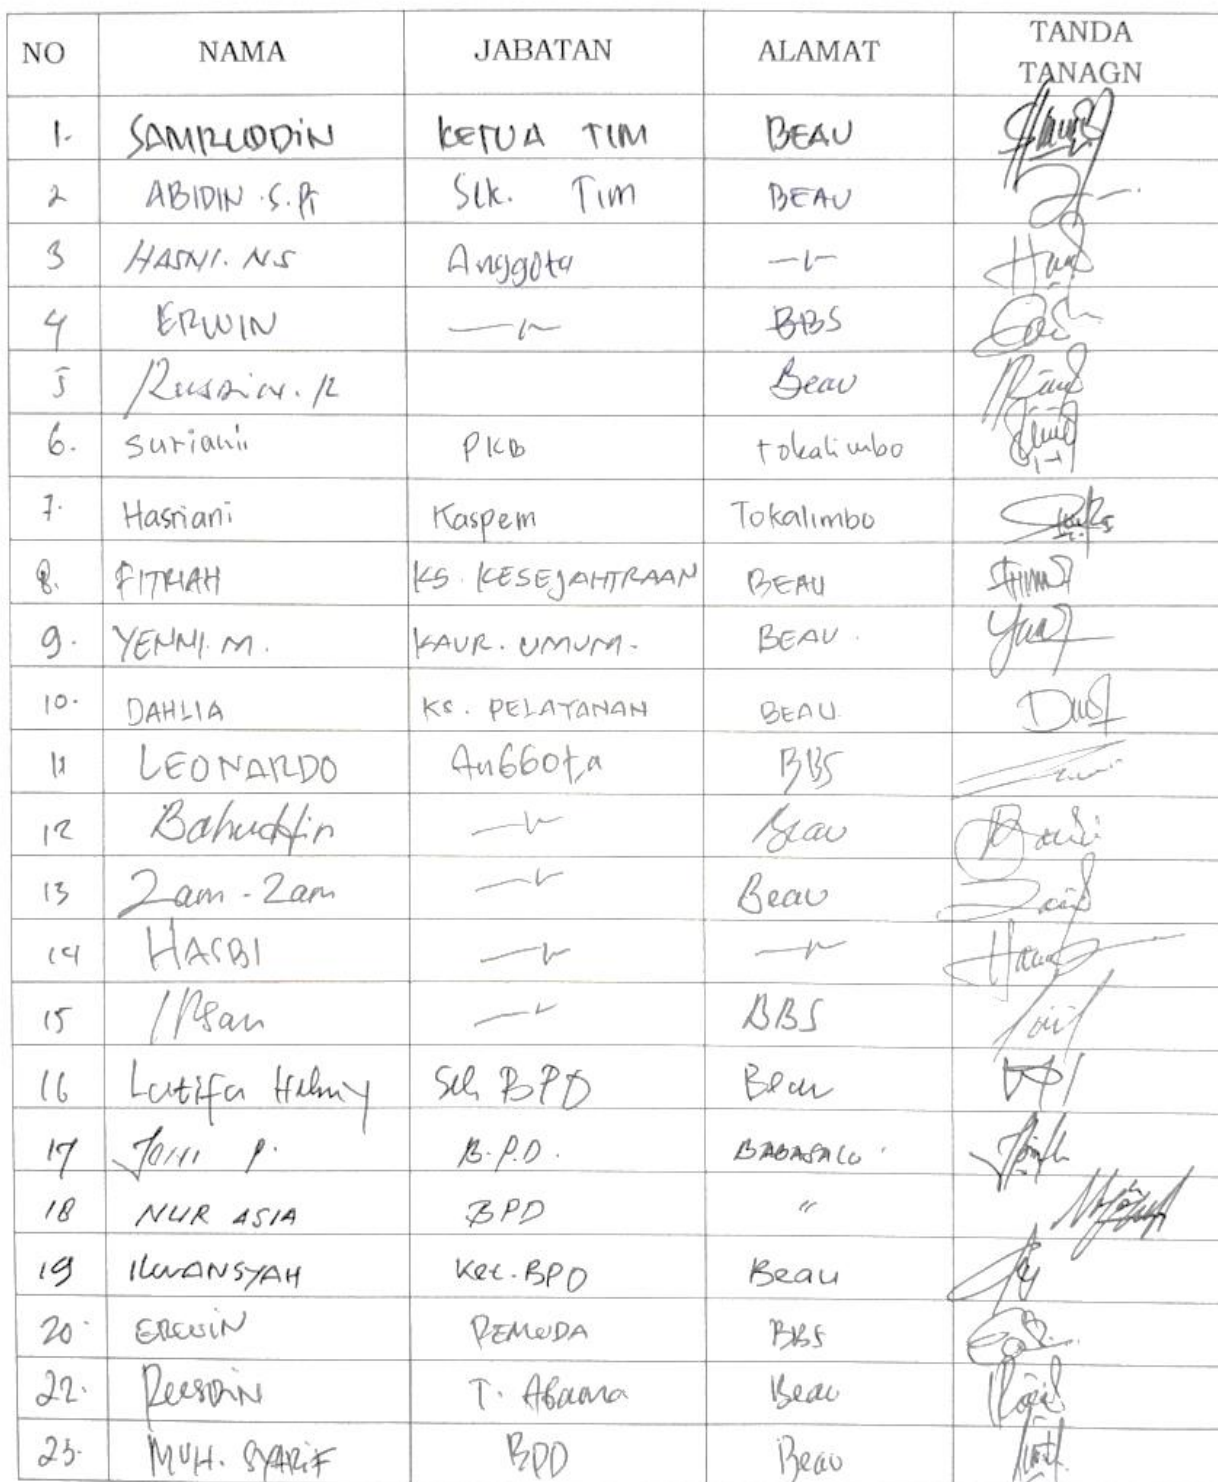 NO NAMA JABATAN ALAMAT TANDA TANAGN
1. SAMRUDDIN KETUA TIM BEAU
2 ABIDIN .S.Pi Sek. Tim BEAU
3 HASNI. NS Anggota —v—
4 ERWIN —v— BBS
5 Rusdin. R Beau
6. Suriani PKB tokalimbo
7. Hasriani Kaspem Tokalimbo
8. FITRIAH KS. KESEJAHTRAAN BEAU
9. YENNI. M. KAUR. UMUM. BEAU.
10. DAHLIA KS. PELAYANAN BEAU
11 LEONARDO AnGGota BBS
12 Bahuddin —v— Beau
13 Zam-Zam —v— Beau
14 HASBI —v— —v—
15 IRsan —v— BBS
16 Lutifa Helmy Sek BPD Beau
17 P. B.P.D. BABASALO
18 NUR ASIA BPD "
19 IKWANSYAH Ket. BPD Beau
20 ERWIN PEMUDA BBS
22. Rusdin T. AGama Beau
23. MUH. SYARIF BPD Beau